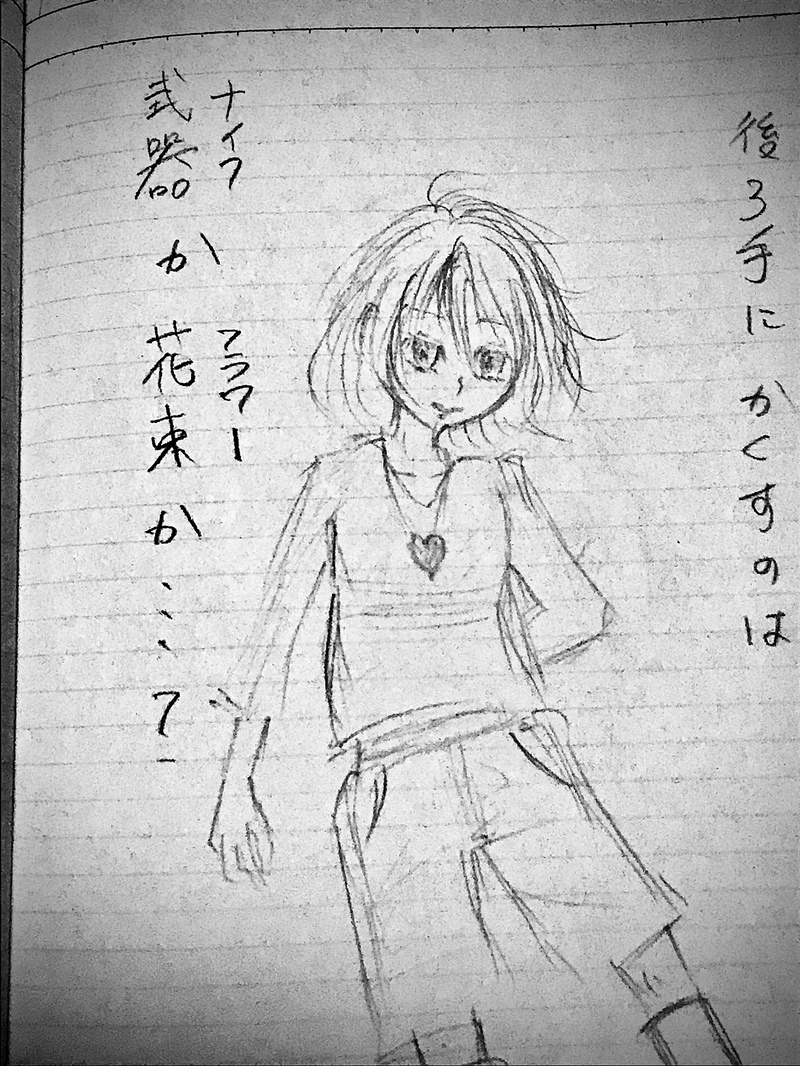 後ろ手にかくすのは
ナイフ フラワー
武器か花束か…?